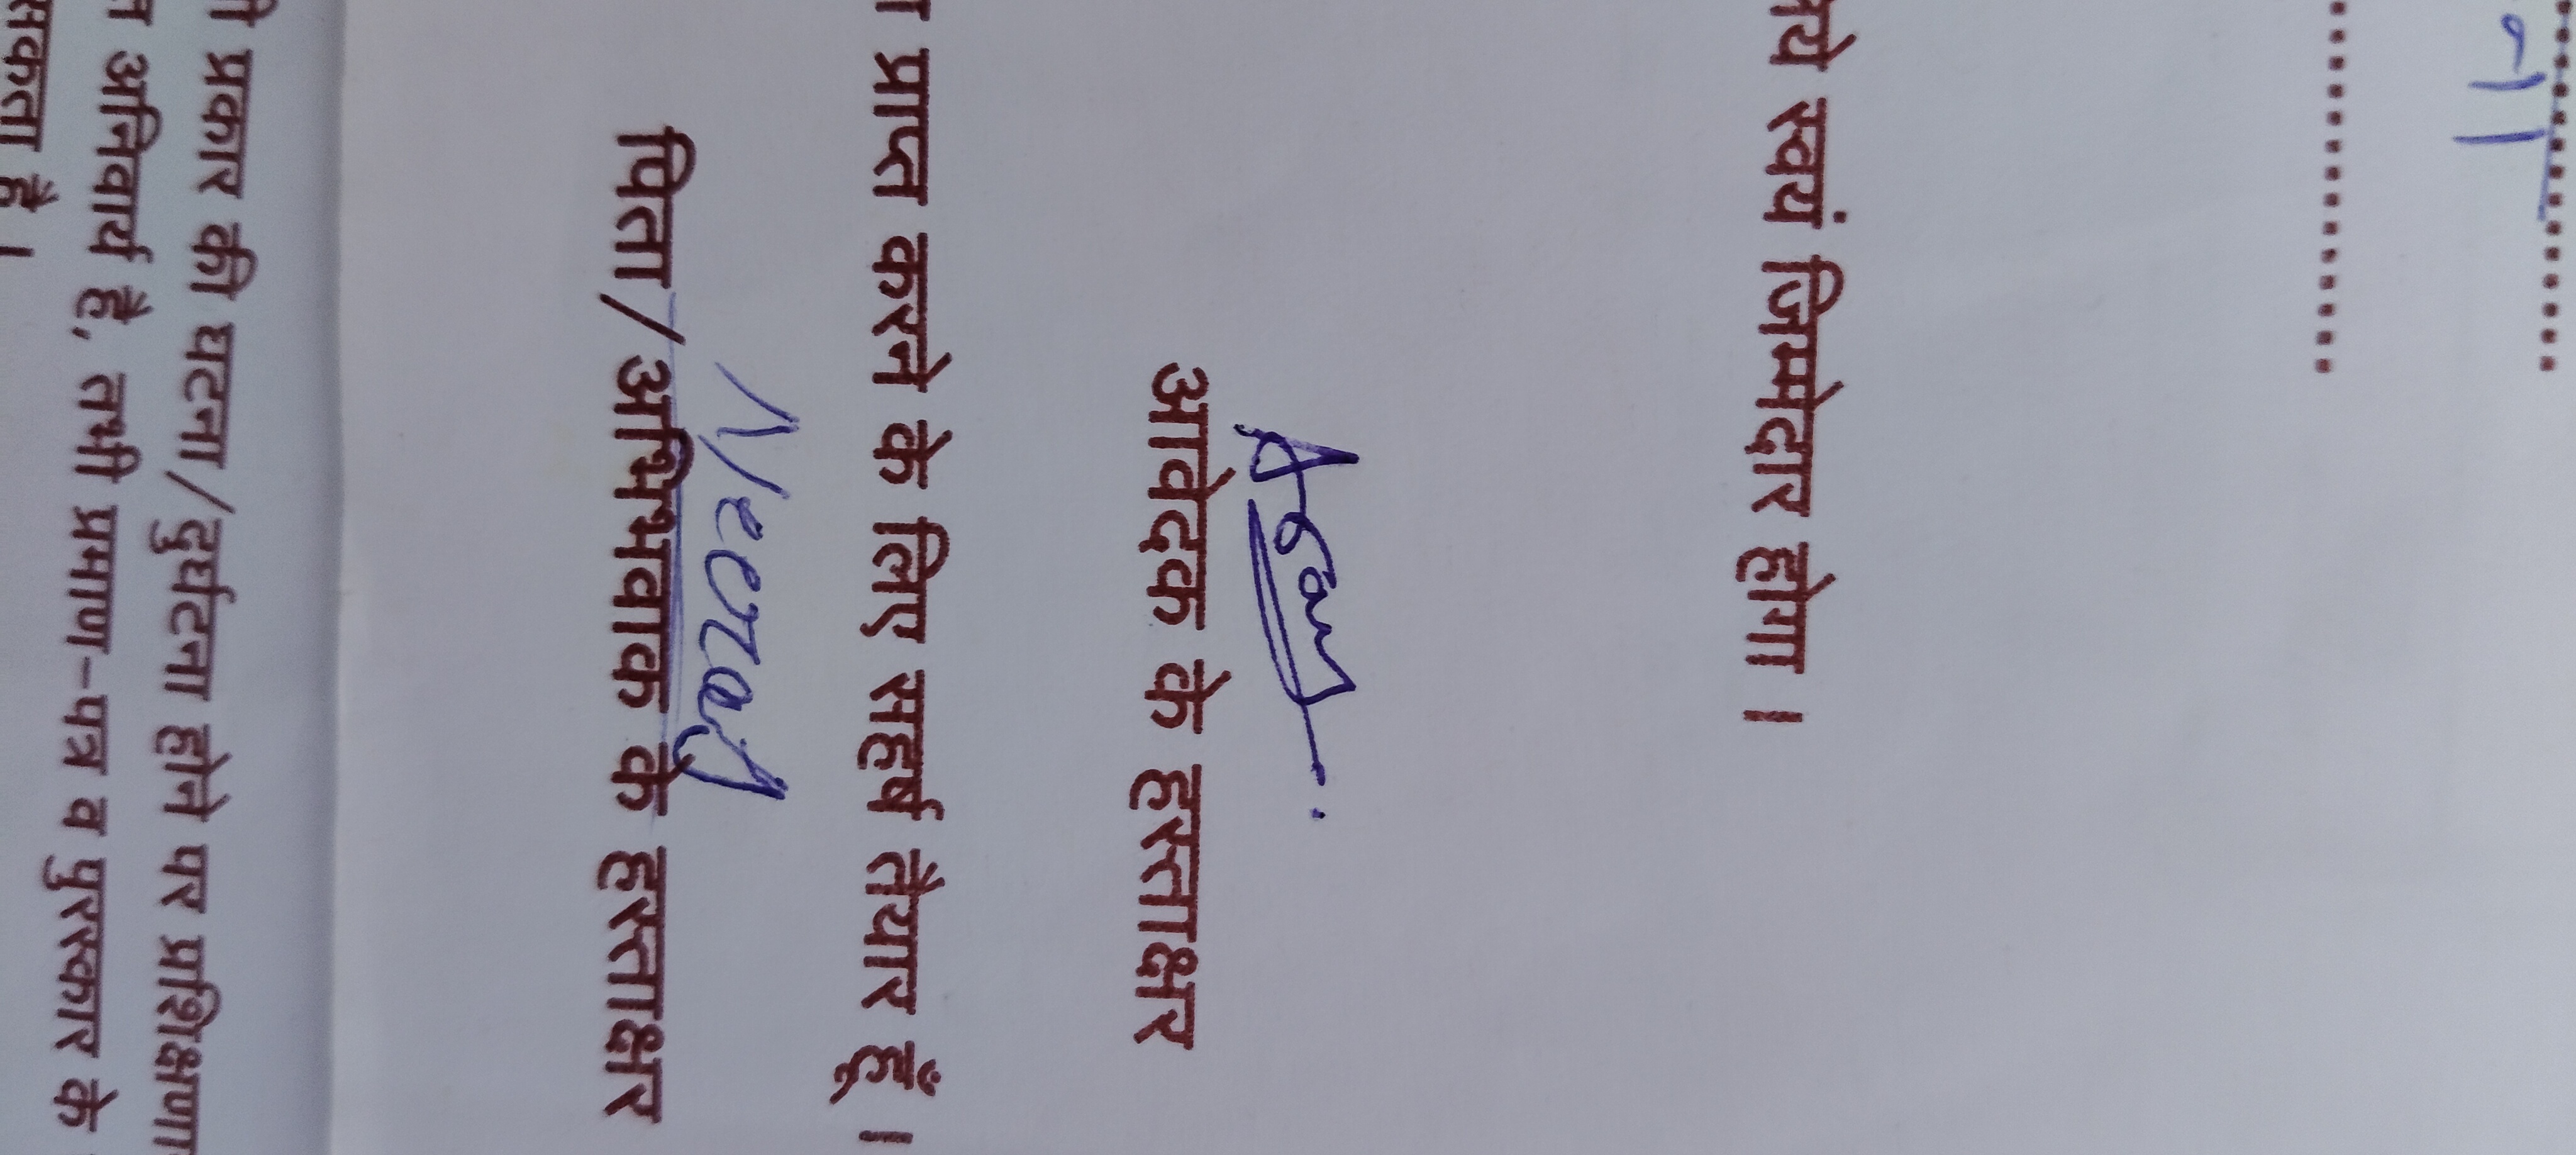 नी
लिये स्वयं जिम्मेदार होगा।
आवेदक के हस्ताक्षर
प्राप्त करने के लिए सहर्ष तैयार हूँ।
Neeraj
पिता/अभिभावक के हस्ताक्षर
प्रकार की घटना/दुर्घटना होने पर प्रशिक्षण
अनिवार्य है, तभी प्रमाण-पत्र व पुरस्कार के
सकता है।